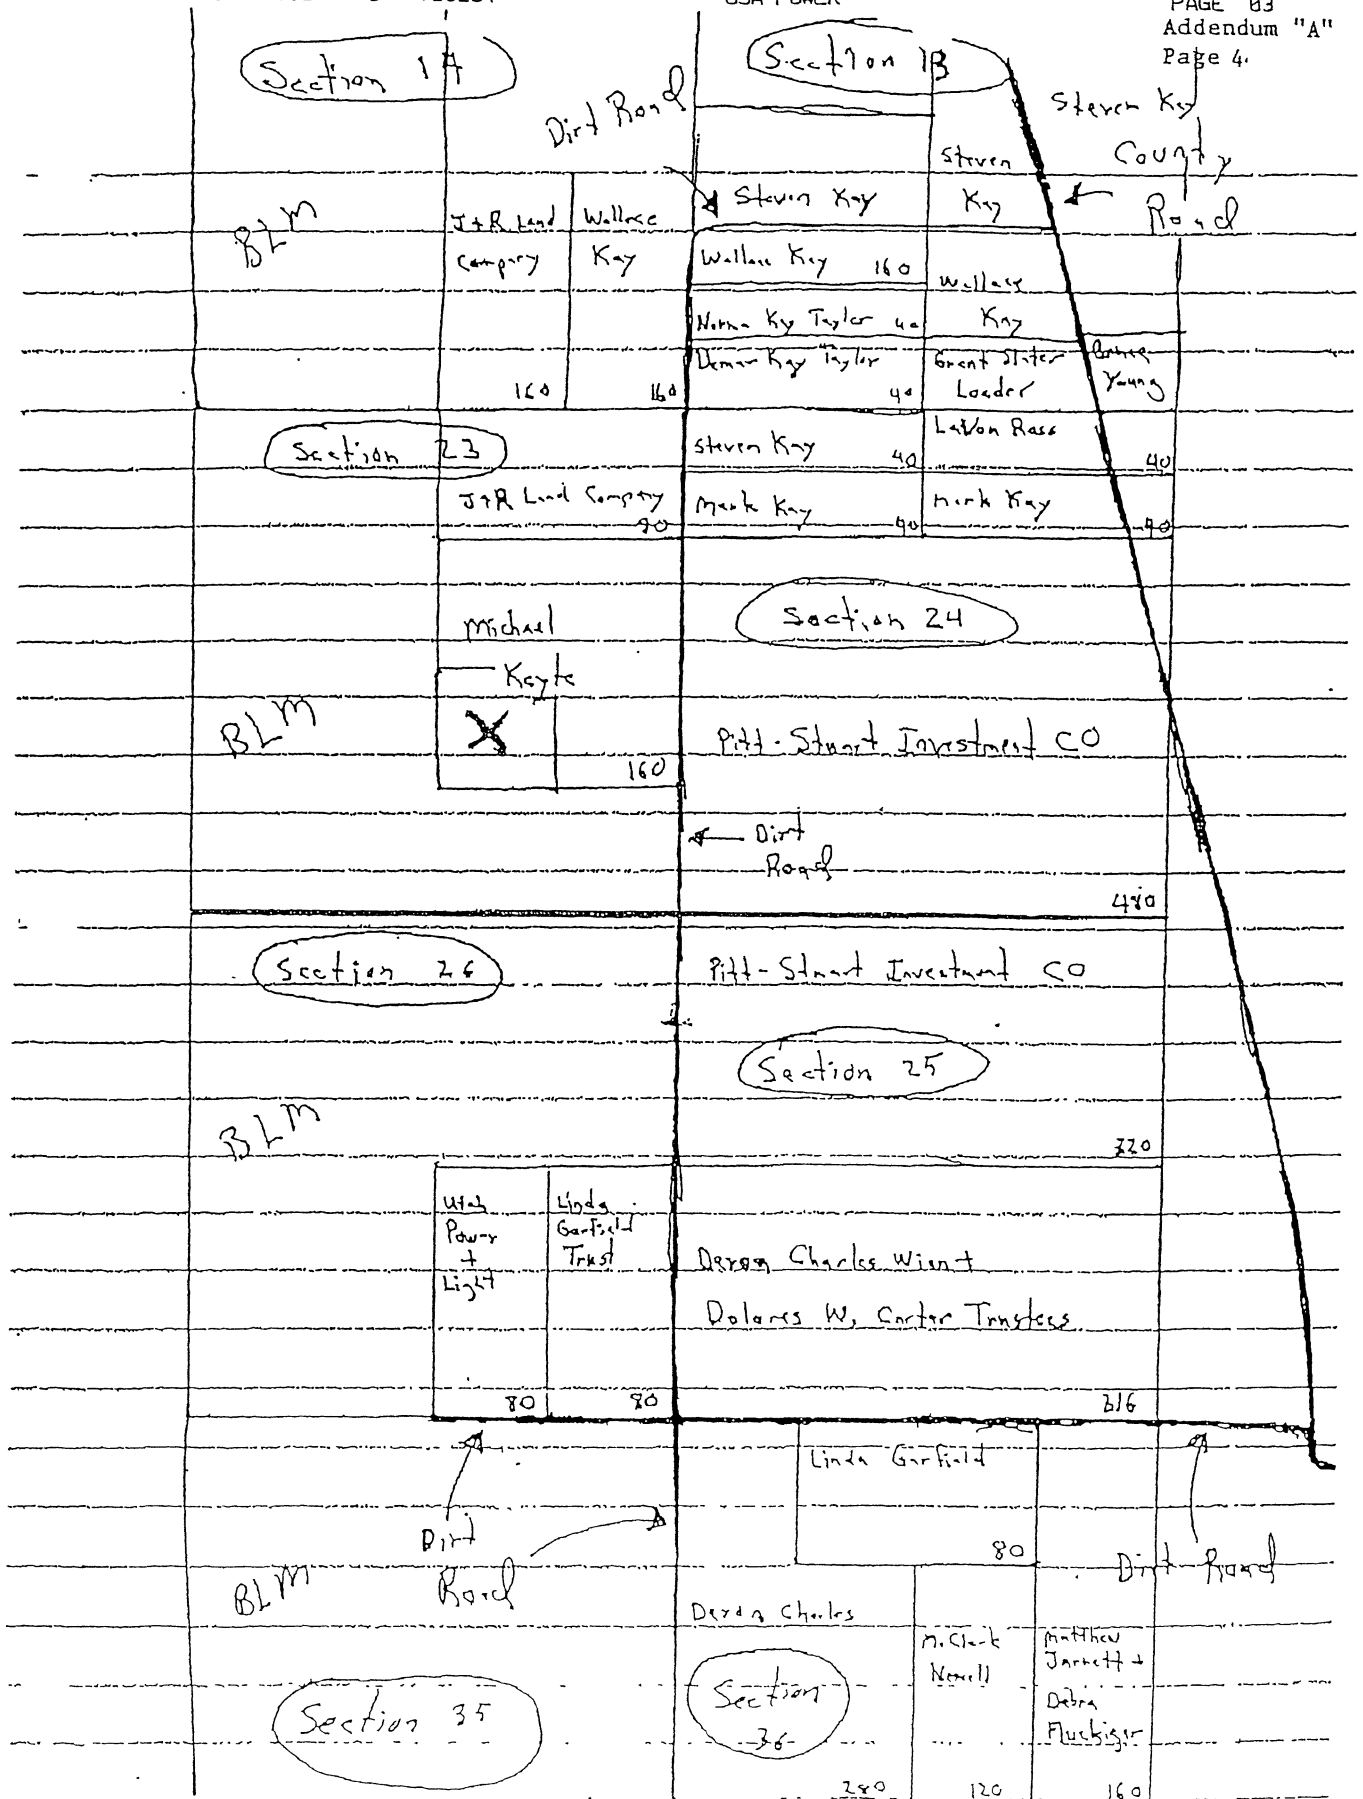 PAGE 03
Addendum "A"
Page 4.
Section 14
Section 13
Dirt Road
Steven Kay
County
Road
BLM
J+R Land
Company
160
Wallace
Kay
160
Steven Kay
Steven
Kay
Wallace Kay 160
Wallace
Kay
Norma Kay Taylor 40
Demar Kay Taylor
40
Grant Slater
Loader
Young
Section 23
Steven Kay
40
LaVon Rass
40
J+R Land Company
80
Mark Kay
40
Mark Kay
40
Michael
Kayte
X
160
Section 24
BLM
Pitt-Stuart Investment CO
Dirt
Road
480
Section 26
Pitt-Stuart Investment CO
Section 25
BLM
320
Utah
Power
+
Light
80
Linda
Garfield
Trust
80
Charles Wien +
Dolores W. Carter Trustees
316
Linda Garfield
80
Dirt
Road
Dirt Road
BLM
Charles
Section
36
280
M. Clark
Newell
120
Matthew
Jarrett +
Debra
Fluckiger
160
Section 35